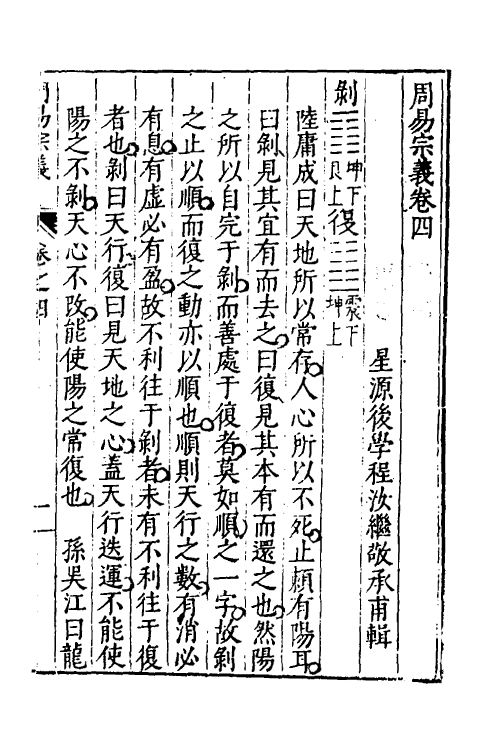 周易宗義卷四
星源後學程汝繼敬承甫輯
剝 坤下艮上 復 震下坤上
陸庸成曰天地所以常存人心所以不死止頼有陽耳
曰剝見其宜有而去之曰復見其本有而還之也然陽
之所以自完于剝而善處于復者莫如順之一字故剝
之止以順而復之動亦以順也順則天行之數有消必
有息有虛必有盈故不利往于剝者未有不利往于復
者也剝曰天行復曰見天地之心蓋天行迭運不能使
陽之不剝天心不改能使陽之常復也 孫吳江曰龍
周易宗義 卷之四 一